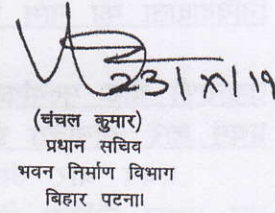 23/X/19
(चंचल कुमार)
प्रधान सचिव
भवन निर्माण विभाग
बिहार पटना।